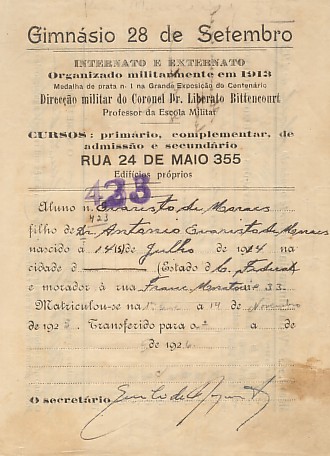 Gimnásio 28 de Setembro
INTERNATO E EXTERNATO
Organizado militarmente em 1913
Medalha de prata n. 1 na Grande Exposição do Centenário
Direcção militar do Coronel Dr. Liberato Bittencourt
Professor da Escola Militar
CURSOS: primário, complementar, de
admissão e secundário
RUA 24 DE MAIO 355
Edifícios próprios
423
Aluno n. Evaristo de Moraes
423
filho de Dr. Antonio Evaristo de Moraes
nascido á 14 de Julho de 1914 na
cidade d (Estado d C. Federal
e morador á rua Franc. Moratori 33
Matriculou-se na a 19 de Novembro
de 1925. Transferido para o a de
de 1926
O secretário